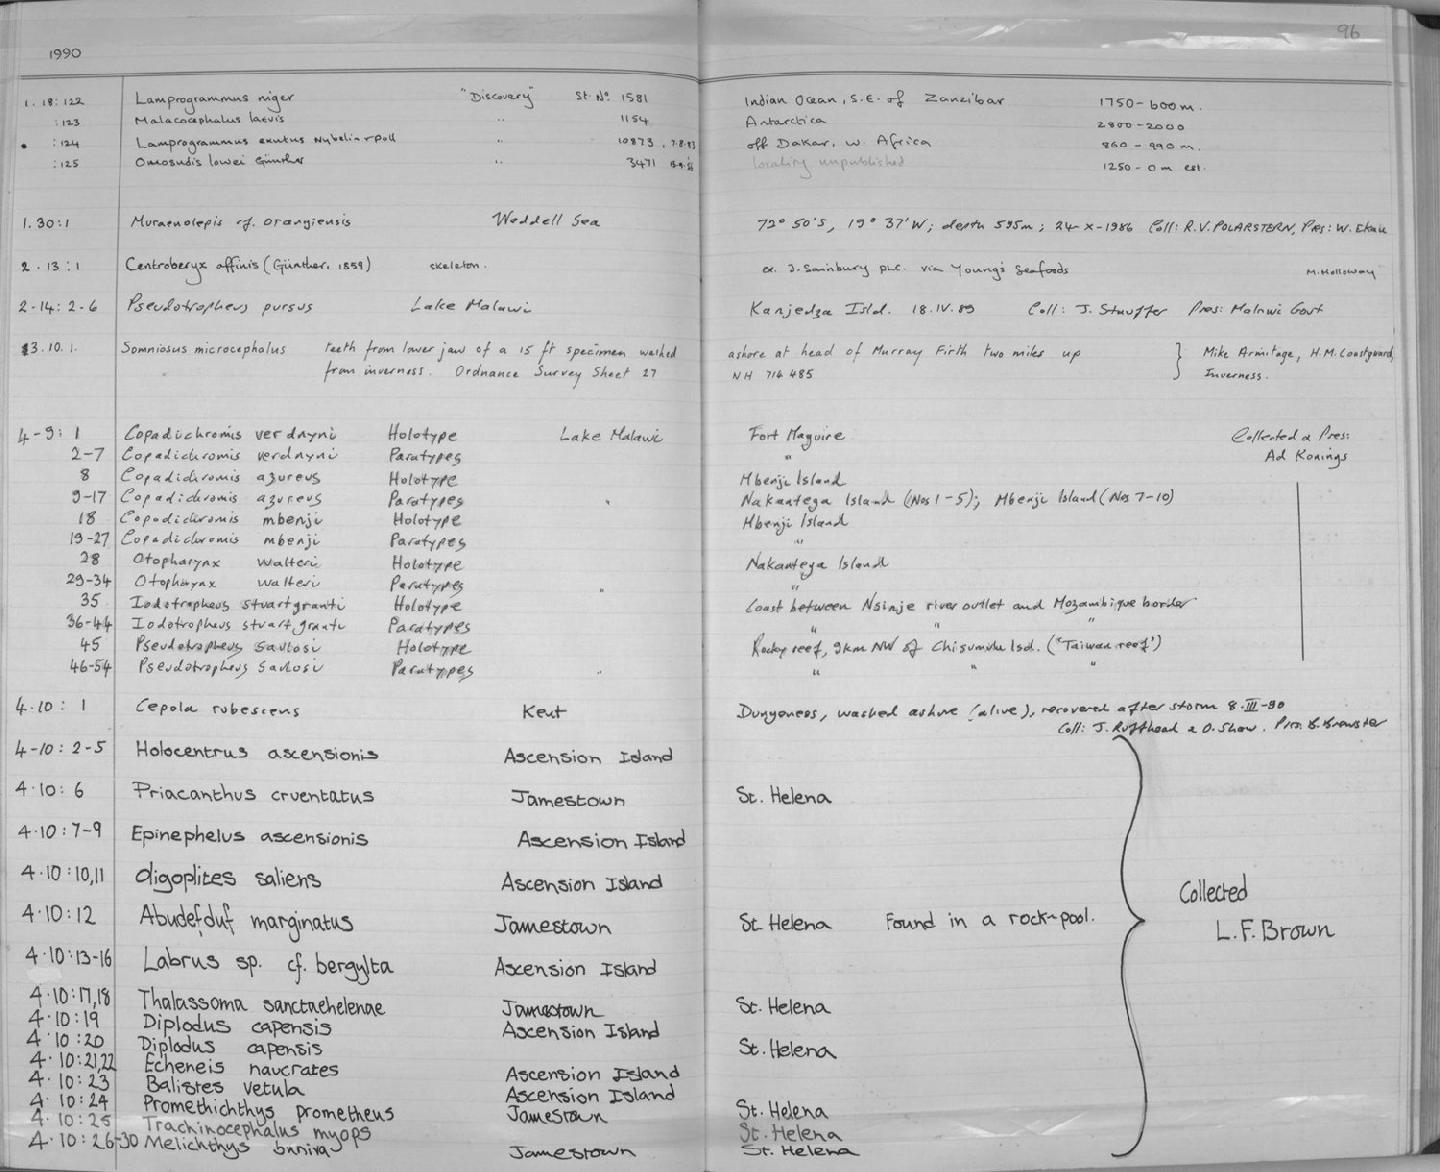 96
1990
1. 18: 122 Lamprogrammus niger "Discovery" St. No. 1581 Indian Ocean, S.E. of Zanzibar 1750-600m.
:123 Malacocephalus laevis " 1154 Antarctica 2800-2000
:124 Lamprogrammus exutus Nybelin & Poll " 10873 . 7.8.83 off Dakar, W. Africa 860 - 990 m.
:125 Omosudis lowei Günther " 3471 locality unpublished 1250 - 0 m est.
1. 30:1 Muraenolepis cf. orangiensis Weddell Sea 72° 50'S, 19° 37'W; depth 595m; 24-X-1986 Coll: R.V. POLARSTERN, Pres: W. Ekau
2. 13:1 Centroberyx affinis (Günther, 1859) skeleton. ex. J. Sainsbury plc. via Young's Seafoods M. Holloway
2-14: 2-6 Pseudotropheus pursus Lake Malawi Kanjedza Isld. 18.IV.89 Coll: J. Stauffer Pres: Malawi Govt
3.10.1. Somniosus microcephalus teeth from lower jaw of a 15 ft specimen washed ashore at head of Murray Firth two miles up } Mike Armitage, H.M. Coastguard,
from inverness. Ordnance Survey Sheet 27 NH 714 485 Inverness.
4-9: 1 Copadichromis verduyni Holotype Lake Malawi Fort Maguire Collected & Pres:
2-7 Copadichromis verduyni Paratypes " Ad Konings
8 Copadichromis azureus Holotype Mbenji Island
9-17 Copadichromis azureus Paratypes " Nakantenga Island (Nos 1-5); Mbenji Island (Nos 7-10)
18 Copadichromis mbenji Holotype Mbenji Island
19-27 Copadichromis mbenji Paratypes "
28 Otopharynx walteri Holotype Nakantenga Island
29-34 Otopharynx walteri Paratypes " "
35 Iodotropheus stuartgranti Holotype Coast between Nsinje river outlet and Mozambique border
36-44 Iodotropheus stuartgranti Paratypes " " "
45 Pseudotropheus saulosi Holotype Rocky reef, 9km NW of Chisumulu Isd. ('Taiwan reef')
46-54 Pseudotropheus saulosi Paratypes " " " "
4.10: 1 Cepola rubescens Kent Dungeness, washed ashore (alive), recovered after storm 8.III-90
Coll: J. Rufthead & D. Shaw. Pres. B. Brewster
4-10: 2-5 Holocentrus ascensionis Ascension Island
4.10: 6 Priacanthus cruentatus Jamestown St. Helena
4.10: 7-9 Epinephelus ascensionis Ascension Island
4.10:10,11 Oligoplites saliens Ascension Island
Collected
4.10:12 Abudefduf marginatus Jamestown St. Helena Found in a rock-pool.
L.F. Brown
4.10:13-16 Labrus sp. cf. bergylta Ascension Island
4.10:17,18 Thalassoma sanctaehelenae Jamestown St. Helena
4.10:19 Diplodus capensis Ascension Island
4.10:20 Diplodus capensis St. Helena
4.10:21,22 Echeneis naucrates Ascension Island
4.10:23 Balistes vetula Ascension Island
4.10:24 Promethichthys prometheus Jamestown St. Helena
4.10:25 Trachinocephalus myops St. Helena
4.10:26-30 Melichthys Jamestown St. Helena